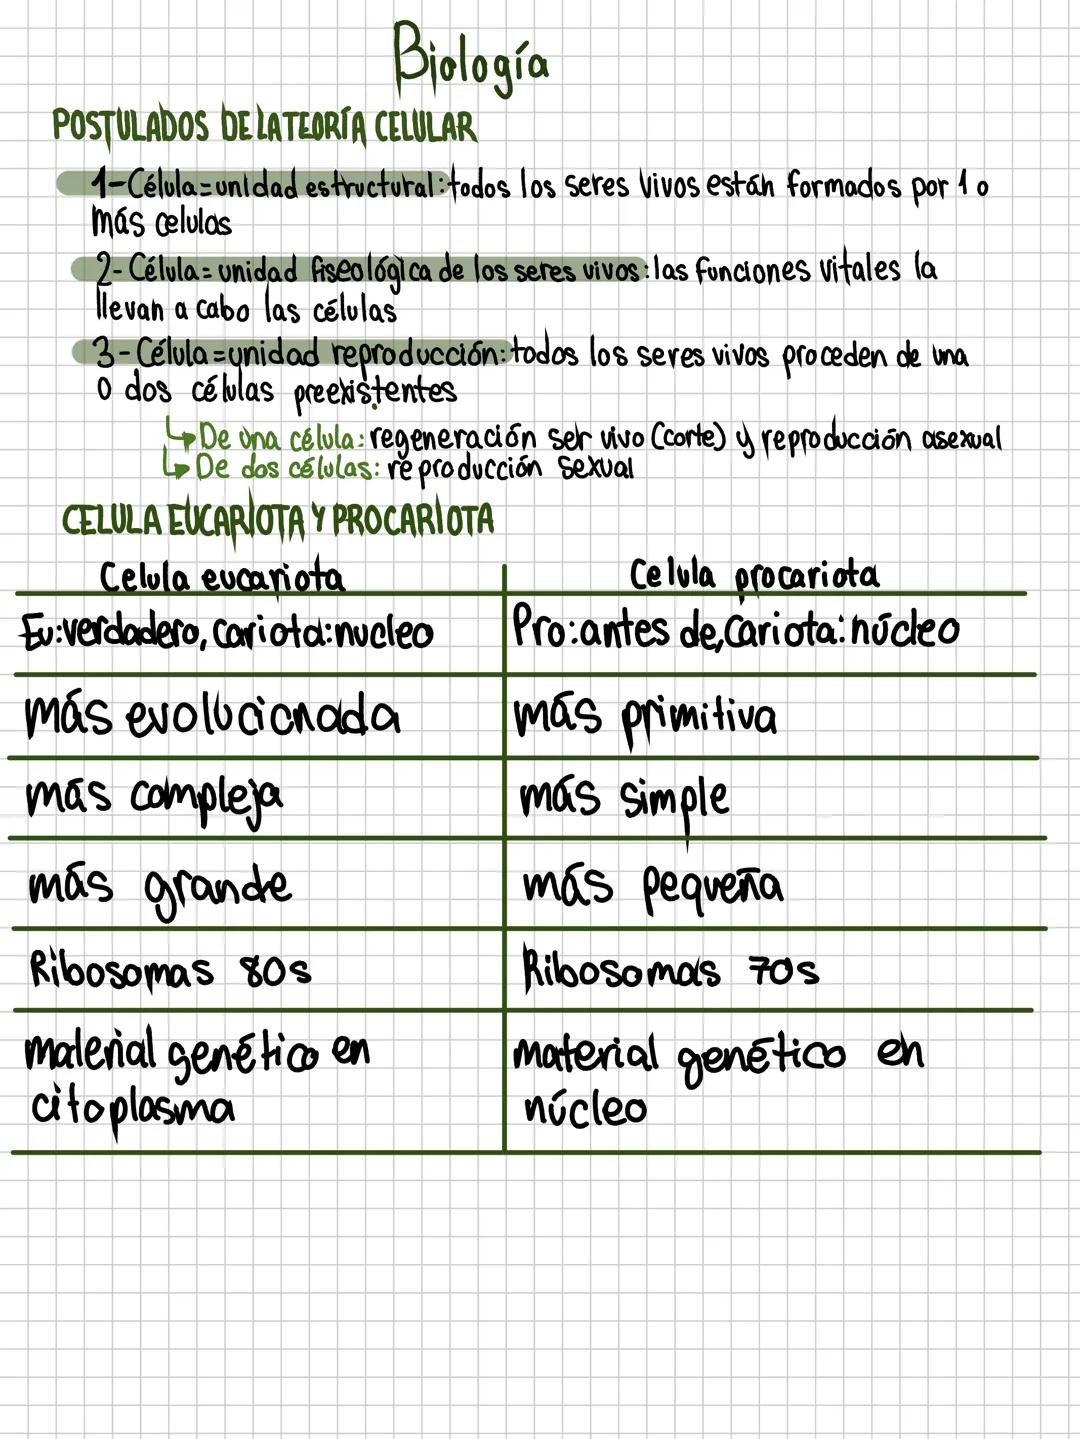 Biología
POSTULADOS DE LA TEORÍA CELULAR
1-Célula=unidad estructural: todos los seres vivos están formados por 1 o
más celulas
2-Célula=unidad fiseológica de los seres vivos: las funciones vitales la
llevan a cabo las células
3-Célula=unidad reproducción: todos los seres vivos proceden de una
o dos células preexistentes
↳De una célula: regeneración ser vivo (corte) y reproducción asexual
↳De dos células: reproducción sexual
CELULA EUCARIOTA Y PROCARIOTA
Celula eucariota
Celula procariota
Eu:verdadero, cariota:nucleo
Pro:antes de, Cariota:núcleo
más evolucionada
más primitiva
más compleja
más simple
más grande
más pequeña
Ribosomas 80s
Ribosomas 70s
material genético en
citoplasma
material genético en
núcleo